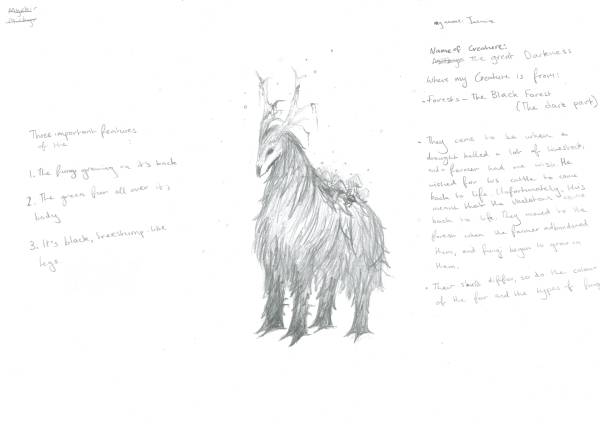 my name:
Name of Creature:
The great Darkness
Where my Creature is from:
- Forests - The Black Forest
(The dark part)
Three important features
of the
1. The fungi growing on it's back
2. The green furr all over it's
body
3. It's black, treestump-like
legs
• They came to be when a
drought killed a lot of livestock,
farmer had one wish. He
wished for his cattle to come
back to life. Unfortunately, this
meant that the skeletons came
back to life. They moved to the
forest when the farmer abandoned
them, and fungi began to grow on
them.
• Their skulls differ, so do the colour
of the fur and the types of fungi